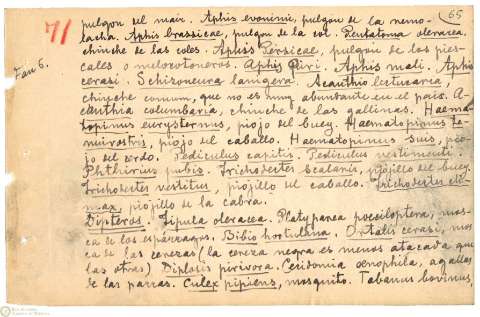 71
65
Fau 6.
pulgon del maiz. Aphis evonimi, pulgon de la remo-
lacha. Aphis brassicae, pulgon de la col. Pentatoma oleracea,
chinche de las coles. Aphis Persicae, pulgon de los pies-
cales o melocotoneros. Aphis Piri. Aphis mali. Aphis
cerasi. Schizoneura lanigera. Acanthia lectucaria,
chinche comun, que no es muy abundante en el pais. A-
canthia columbaria, chinche de las gallinas. Haema-
topinus eurysternus, piojo del buey. Haematopinus te-
nuirostris, piojo del caballo. Haematopinus suis, pio-
jo del cerdo. Pediculus capitis. Pediculus vestimenti.
Phthirius pubis. Trichodectes scalaris, piojillo del buey.
Trichodectes vestitus, piojillo del caballo. Trichodectes cli-
max, piojillo de la cabra.
Dipteros. Tipula oleracea. Platyparea poeciloptera, mos-
ca de los espárragos. Bibio hortulana. Ortalis cerasi, mos-
ca de las cerezas (la cereza negra es menos atacada que
las otras) Diplosis pirivora. Cecidomia oenophila, agallas
de las parras. Culex pipiens, mosquito. Tabanus bovinus,